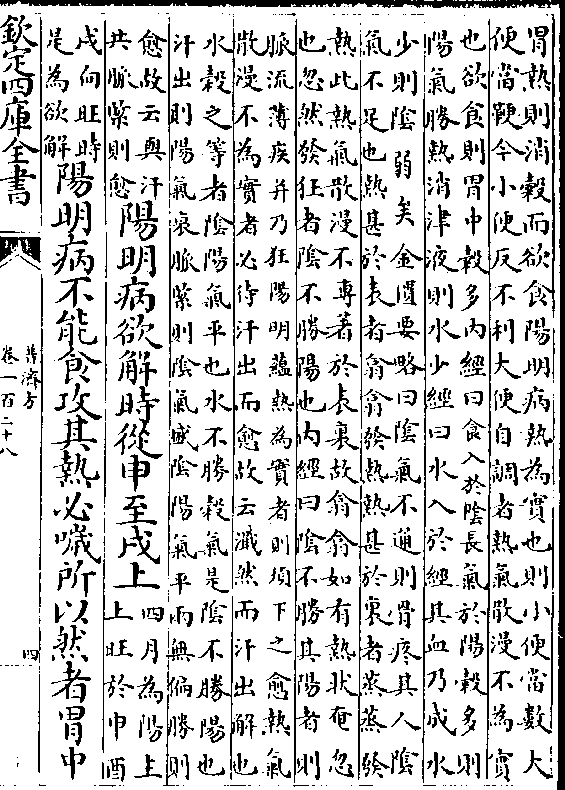 胃熱則消穀而欲食陽明病熱為實也則小便當數大
便當鞕今小便反不利大便自調者熱氣散漫不為實
也欲食則胃中穀多內經曰食入於陰長氣於陽穀多則
陽氣勝熱消津液則水少經曰水入於經其血乃成水
少則陰弱矣金匱要略曰陰氣不通則骨疼其人陰
氣不足也熱甚於表者翕翕發熱熱甚於裏者蒸蒸發
熱此熱氣散漫不專著於表裏故翕翕如有熱狀奄忽
也忽然發狂者陰不勝陽也內經曰陰不勝其陽者則
脈流薄疾并乃狂陽明蘊熱為實者則須下之愈熱氣
散漫不為實者必待汗出而愈故云濈然而汗出解也
水穀之等者陰陽氣平也水不勝穀氣是陰不勝陽也
汗出則陽氣衰脈緊則陰氣盛陰陽氣平兩無偏勝則
愈故云與汗
共脈緊則愈
陽明病欲解時從申至戌上
四月為陽土
土旺於申酉
戌向旺時
是為欲解
陽明病不能食攻其熱必噦所以然者胃中
欽定四庫全書
普濟方
卷一百二十八
四